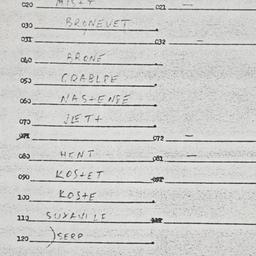 020 MIStY 021 —
030 BRONEVET
031 032 —
040 ARONE
050 CRABLPE
060 NAStENSE
070 JLETt
071 072 —
080 HENT 081 —
090 KOStET
100 KOStE
110 SUXAVILE
120 )SERP